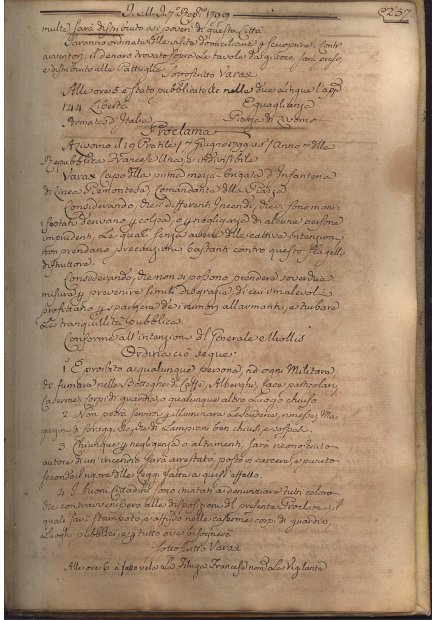 1799
257
multe, sarà distribuito ai poveri di questa Città
Saranno ordinate delle visite domiciliarie scuoprire i Contra
avventori: il denaro trovato sopra le tavole da giuoco, sarà preso,
e distribuito alle Pattuglie. Sottoscritto Varax
Alle ore 6 è stato pubblicato nelle due
Libertà Eguaglianza
Armata d'Italia Piazza di Livorno
Proclama
Livorno il 19 Pratile 7 Giugno 1799 Anno 7 della
Repubblica Francese Una, e indivisibile
Varax Capo della prima mezza Brigata d'Infanteria
di Linea Piemontese, Comandante della Piazza
Considerando, che i differenti Incendi, che si sono mani=
festati derivano colpa, o negligenza di alcune persone
imprudenti, le quali senza avere delle cattive intenzioni
non prendano precauzioni bastanti contro questo flagello
distruttore.
Considerando, che non si possono prendere soverchie
misure prevenire simili disgrazie di cui i malevoli
profittano spargere de i rumori allarmanti, e turbare
la tranquillità pubblica.
Conforme all'intenzioni del Generale Miollis
Ordina ciò segue:
1. È proibito a qualunque persona, ad ogni Militare
di fumare nelle Botteghe di Caffè, Alberghi, Case particolari,
Caserme, Corpi di guardia, o qualunque altro Luogo chiuso.
2. Non potrà servirsi illuminare le Scuderie, rimesse, Ma=
gazzini di foraggi &c. che di Lampioni ben chiusi, e sospesi.
3. Chiunque negligenza o altrimenti, sarà riconosciuto
autore di un'incendio sarà arrestato, posto in carcere, e punito
secondo il rigore delle leggi fatte a quest'effetto.
4. I buoni Cittadini sono invitati a denunziare tutti coloro
che contravvenissero alle disposizioni del presente Proclama, il
quale sarà stampato, e affisso nelle caserme, corpi di guardia,
Luoghi pubblici, e tutto ove bisognerà
Sottoscritto Varax
Alle ore 6 à fatto vela la Francese la Vigilante